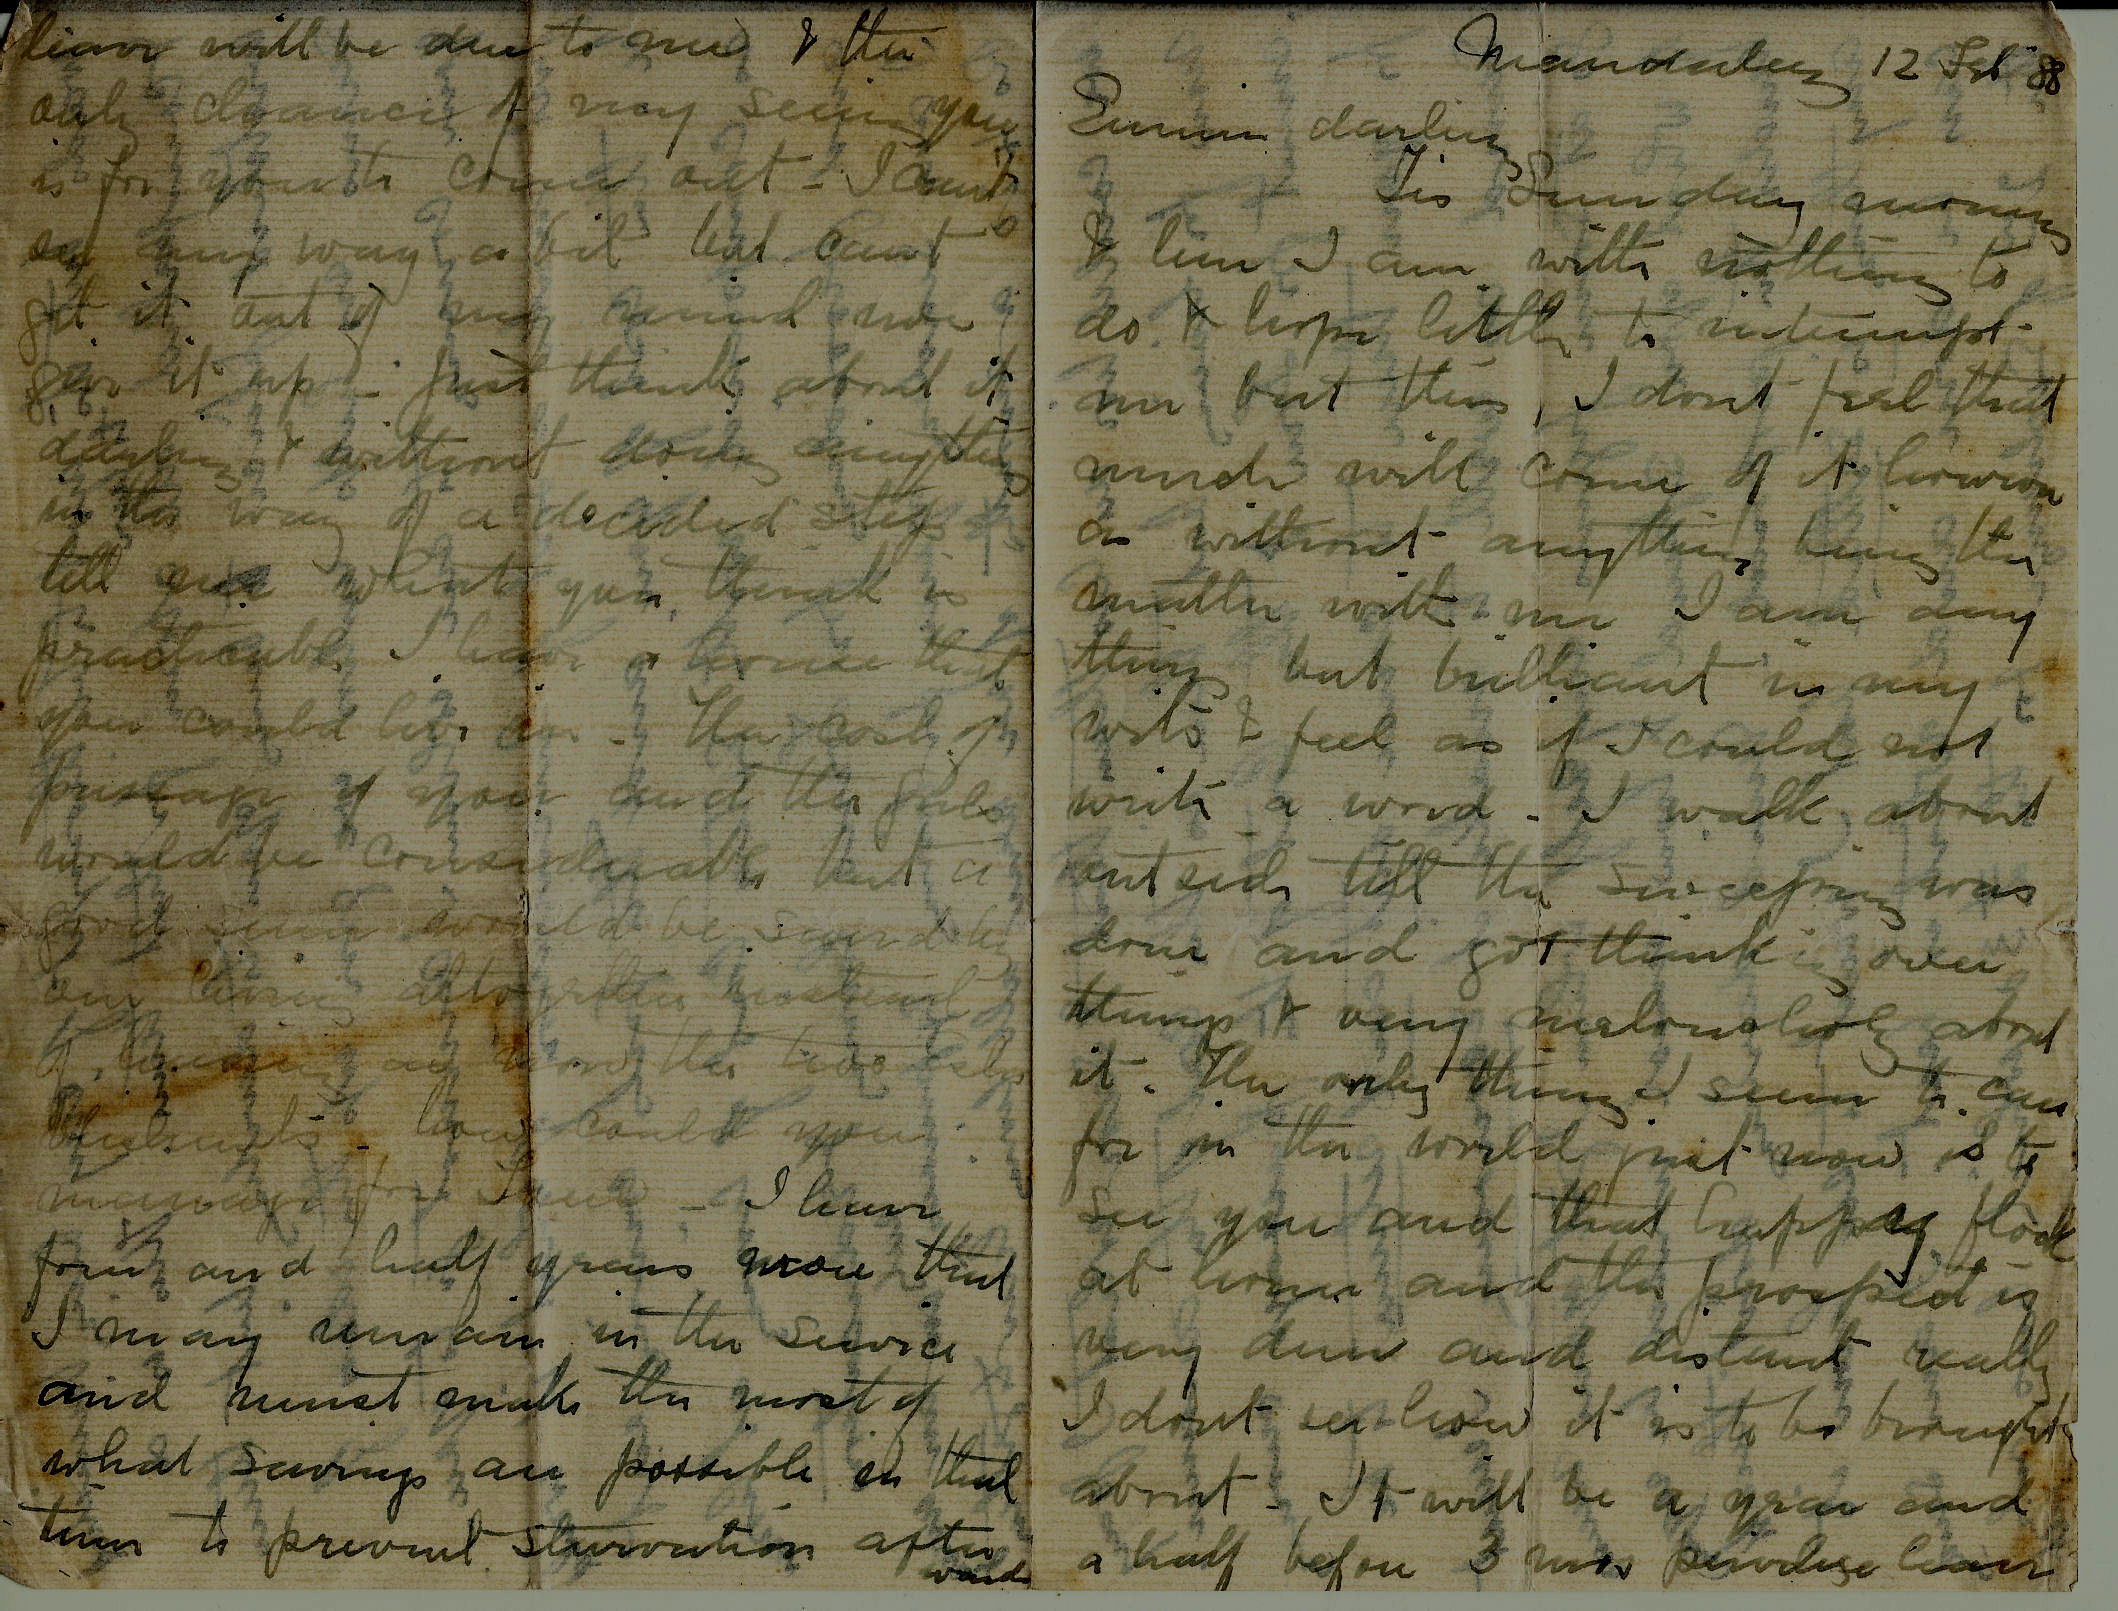 Mandalay 12 Feb 88
Emmie darling
Tis Sunday morning
& here I am with nothing to
do & hope little to interrupt
me but this, I dont feel that
much will come of it however
as without anything being the
matter with me I am any
thing but brilliant in my
wits & feel as if I could not
write a word - I walk about
outside till the sweeping was
done and got thinking over
things & very melancholy about
it. The only thing I seem to care
for in the world just now is to
see you and that happy flock
at home and the prospect is
very dim and distant really
I dont see how it is to be brought
about - It will be a year and
a half before 3 mos privilege leave
leave will be due to me & the
only chance of my seeing you
is for you to come out - I cant
see my way a bit but cant
get it out of my mind nor
give it up - just think about it
darling & without doing anything
in the way of a decided step
tell me what you think is
practicable I have a house that
you could live in - The cost of
passage of you and the girls
would be considerable but a
good sum would be saved by
our living altogether instead
of having as now the two
how could you
manage for I have
four and half years more that
I may remain in the service
and must make the most of
what savings are possible in that
time to prevent starvation after
wards